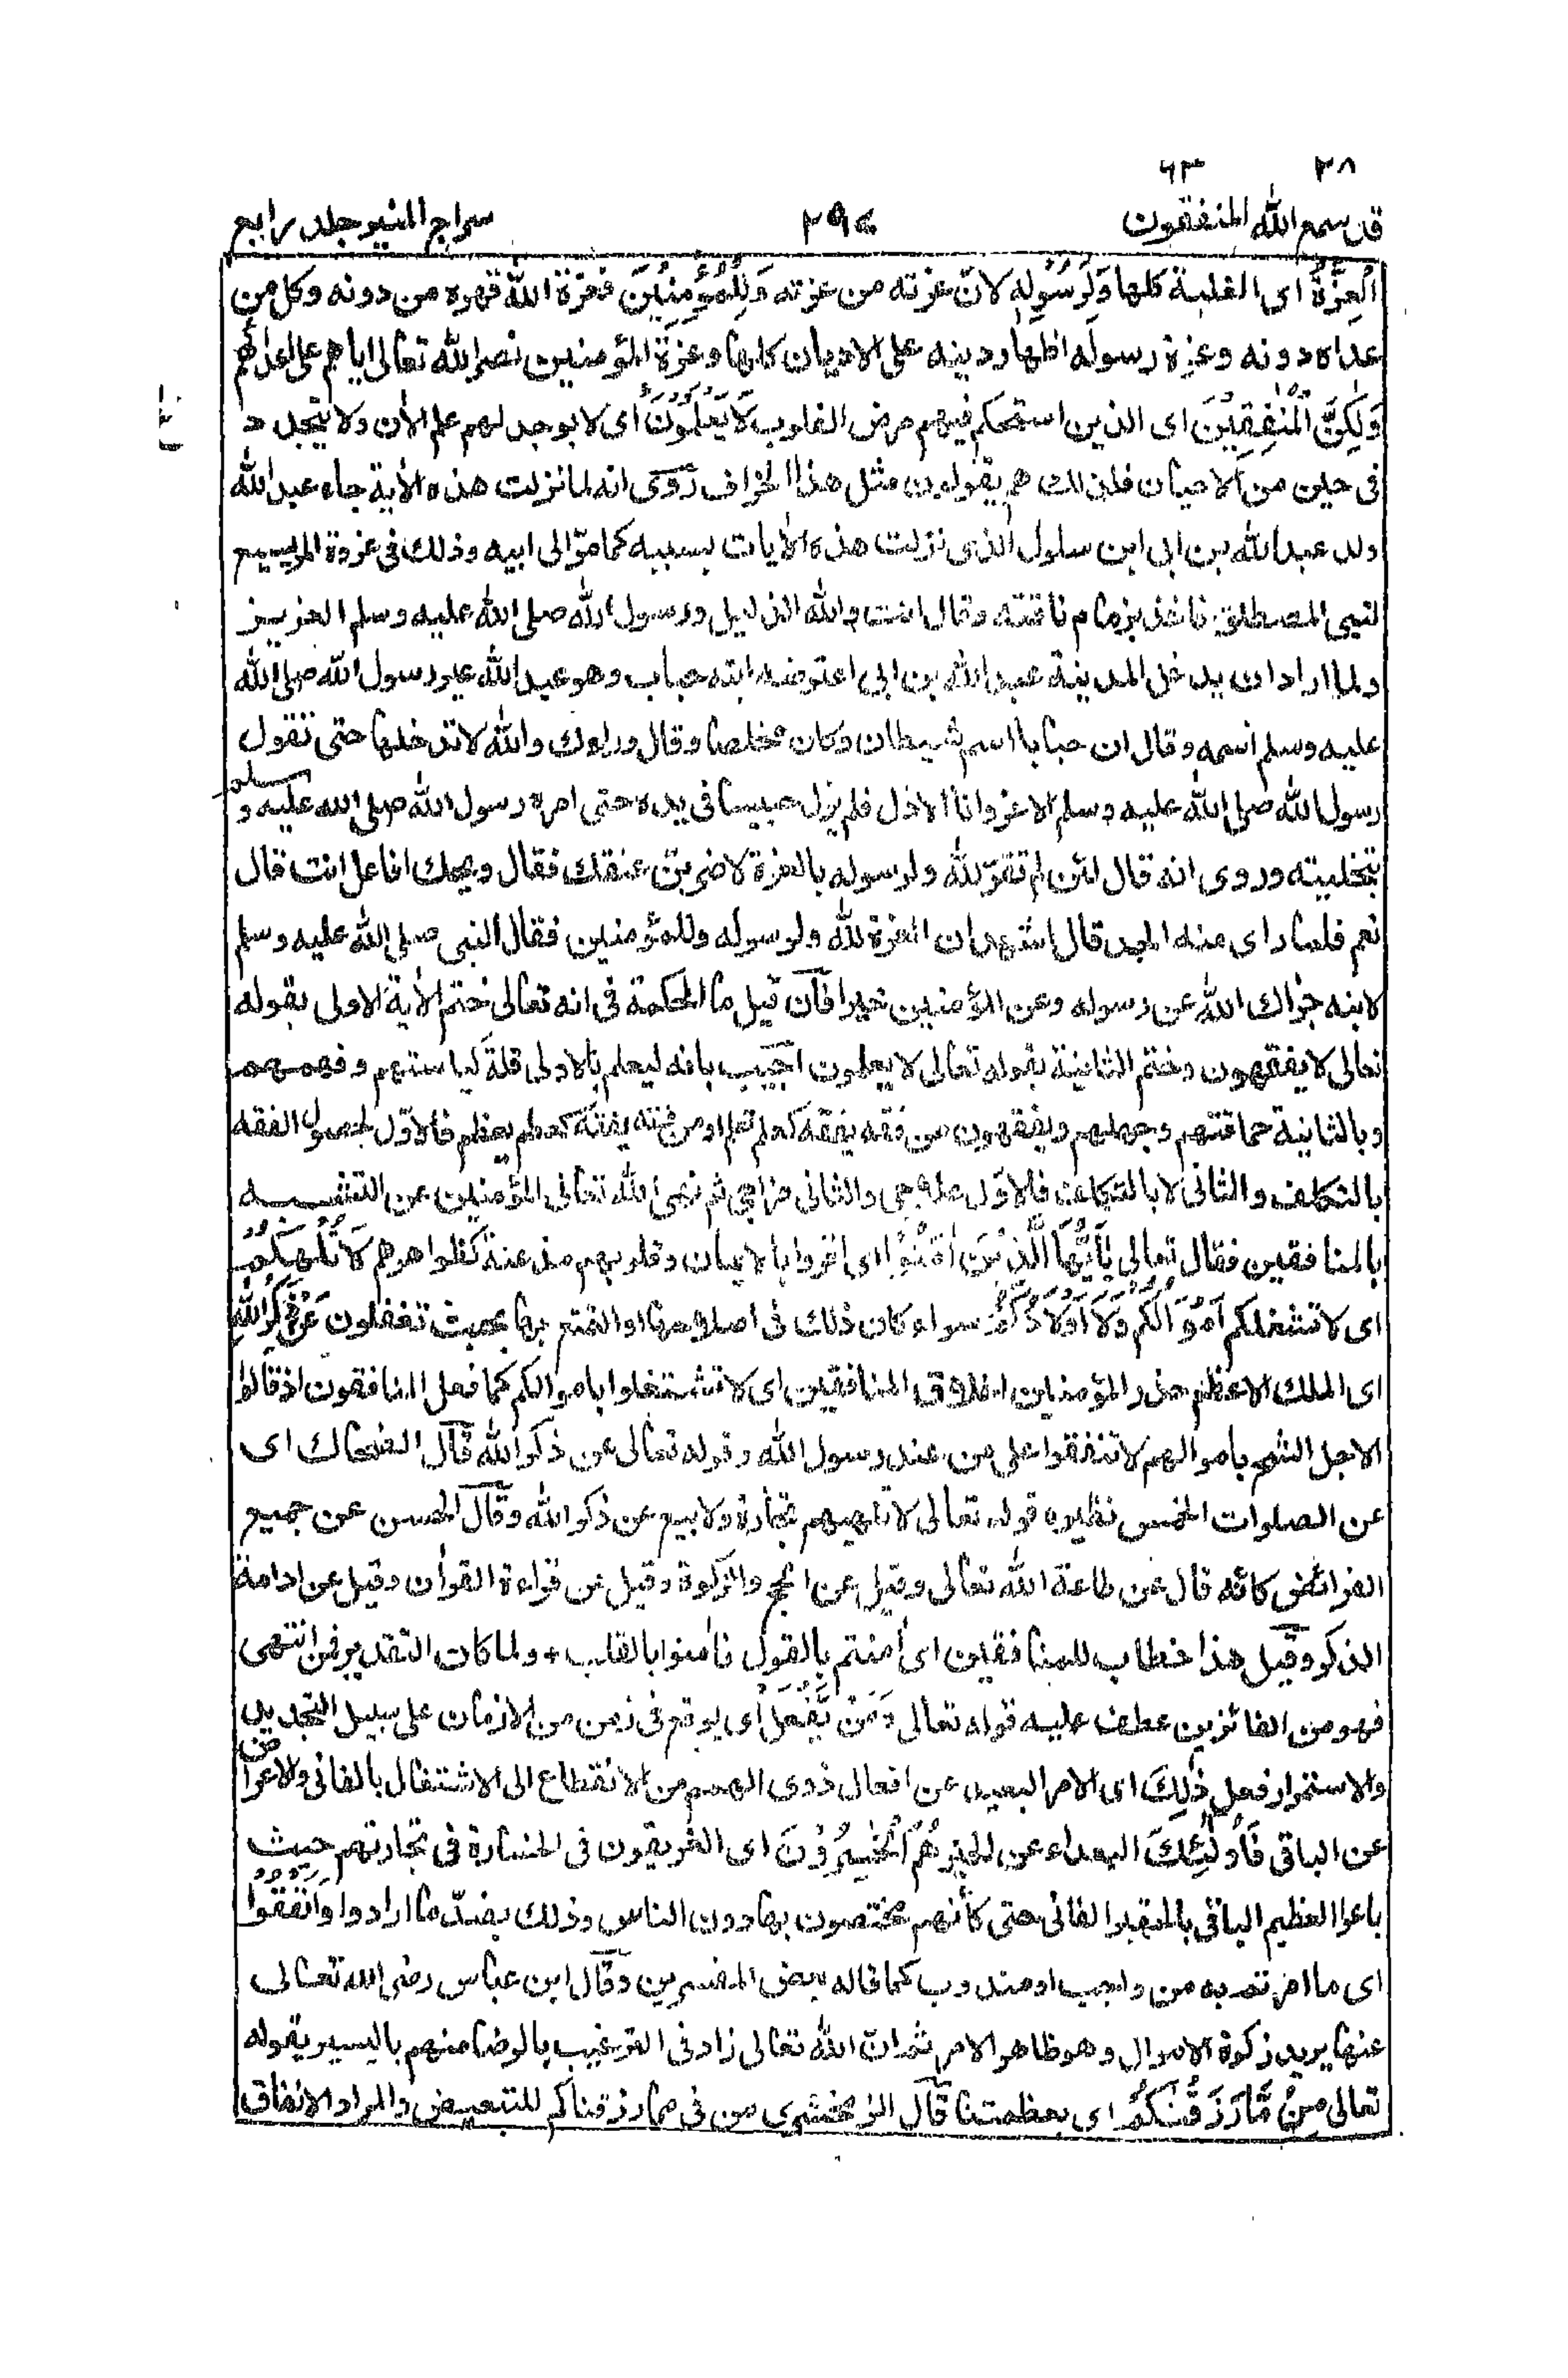 ٢٨ ٦٣
قد سمع الله المنفقون ٢٩٤ سراج المنير جلد رابع
الْعِزَّةُ اى الغلبة كلها وَلِرَسُوْلِهٖ لان عزته من عزته وَلِلْمُؤْمِنِيْنَ فعزة الله قهره من دونه وكل من
عداه دونه وعزة رسوله اظهار دينه على الاديان كلها وعزة المؤمنين نصر الله تعالى اياهم على اعدائهم
وَلٰكِنَّ الْمُنٰفِقِيْنَ اى الذين استحكم فيهم مرض القلوب لَا يَعْلَمُوْنَ اى لا يوجد لهم علم الأن ولا يتجدد
فى حين من الاحيان فلذلك هم يقولون مثل هذا الخراف روى انه لما نزلت هذه الأية جاء عبد الله
ولد عبد الله بن ابى ابن سلول الذى نزلت هذه الأيات بسببه كما مرّ الى ابيه وذلك فى غزوة المريسيع
لبنى المصطلق فاخذ بزمام ناقته وقال انت والله الذليل ورسول الله صلى الله عليه وسلم العزيز
ولما اراد ان يدخل المدينة عبد الله بن ابى اعترضه ابنه حباب وهو عبد الله غير رسول الله صلى الله
عليه وسلم اسمه وقال ان حبابا اسم شيطان وكان مخلصا وقال وراءك والله لا تدخلها حتى تقول
رسول الله صلى الله عليه وسلم الاعز وانا الاذل فلم يزل حبيسا فى يده حتى امره رسول الله صلى الله عليه وسلم
بتخليته وروى انه قال لئن لم تقر لله ولرسوله بالعزة لاضربن عنقك فقال ويحك افاعل انت قال
نعم فلما راى منه الجد قال اشهد ان العزة لله ولرسوله وللمؤمنين فقال النبى صلى الله عليه وسلم
لابنه جزاك الله عن رسوله وعن المؤمنين خيرا فآن قيل ما الحكمة فى انه تعالى ختم الأية الاولى بقوله
تعالى لا يفقهون وختم الثانية بقوله تعالى لا يعلمون اجيب بانه ليعلم بالاولى قلة كياستهم وفهمهم
وبالثانية حماقتهم وجهلهم ويفقهون من فقه يفقه كعلم يعلم او من فقه يفقه كعظم يعظم فالاوّل لحصول الفقه
بالتكلف والثانى لا بالتكلف فالاوّل علاجى والثانى مزاجى ثم نهى الله تعالى المؤمنين عن التشبه
بالمنافقين فقال تعالى يٰاَيُّهَا الَّذِيْنَ اٰمَنُوْا اى اقروا بالايمان وقلوبهم مذعنة كظواهرهم لَا تُلْهِكُمْ
اى لا تشغلكم اَمْوَالُكُمْ وَلَا اَوْلَادُكُمْ سواء كان ذلك فى اصلاحها او التمتع بها بحيث تغفلون عَنْ ذِكْرِ اللّٰهِ
اى الملك الاعظم حذر المؤمنين اخلاق المنافقين اى لا تشتغلوا باموالكم كما فعل المنافقون اذ قالوا
الاجل الشح باموالهم لا تنفقوا على من عند رسول الله وقوله تعالى عن ذكر الله قال الضحاك اى
عن الصلوات الخمس نظيره قوله تعالى لا تلهيهم تجارة ولا بيع عن ذكر الله وقال الحسن عن جميع
الفرائض كانه قال عن طاعة الله تعالى وقيل عن الحج والزكوة وقيل عن قراءة القرأن وقيل عن ادامة
الذكر وقيل هذا خطاب للمنافقين اى أمنتم بالقول فأمنوا بالقلب + ولما كان التقدير فمن انتهى
فهو من الفائزين عطف عليه قوله تعالى وَمَنْ يَّفْعَلْ اى يوقع فى زمن من الازمان على سبيل التجديد
والاستمرار فعل ذٰلِكَ اى الامر البعيد عن افعال ذوى الهمم من الانقطاع الى الاشتغال بالفانى والاعراض
عن الباقى فَاُولٰٓئِكَ البعداء عن الخير هُمُ الْخٰسِرُوْنَ اى الغريقون فى الخسارة فى تجارتهم حيث
باعوا العظيم الباقى بالحقير الفانى حتى كانهم مختصون بها دون الناس وذلك بضدّ ما ارادوا وَاَنْفِقُوْا
اى ما امرتم به من واجب او مندوب كما قاله بعض المفسرين وقال ابن عباس رضى الله تعالى
عنهما يريد زكوة الاموال وهو ظاهر الامر ثم انّ الله تعالى زاد فى الترغيب بالرضا منهم باليسير بقوله
تعالى مِنْ مَّا رَزَقْنٰكُمْ اى بعظمتنا قال الزمخشرى من فى مما رزقناكم للتبعيض والمراد الانفاق